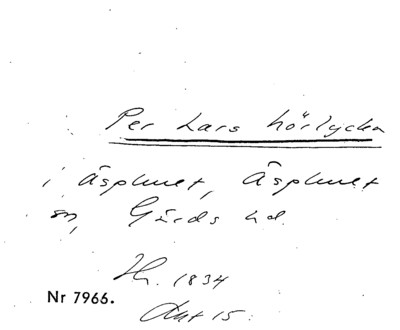 Per Lars hörlycka
i Äsphult, Äsphult
sn, Gärds hd.
Hr. 1834
Nr 7966.
Akt 15.